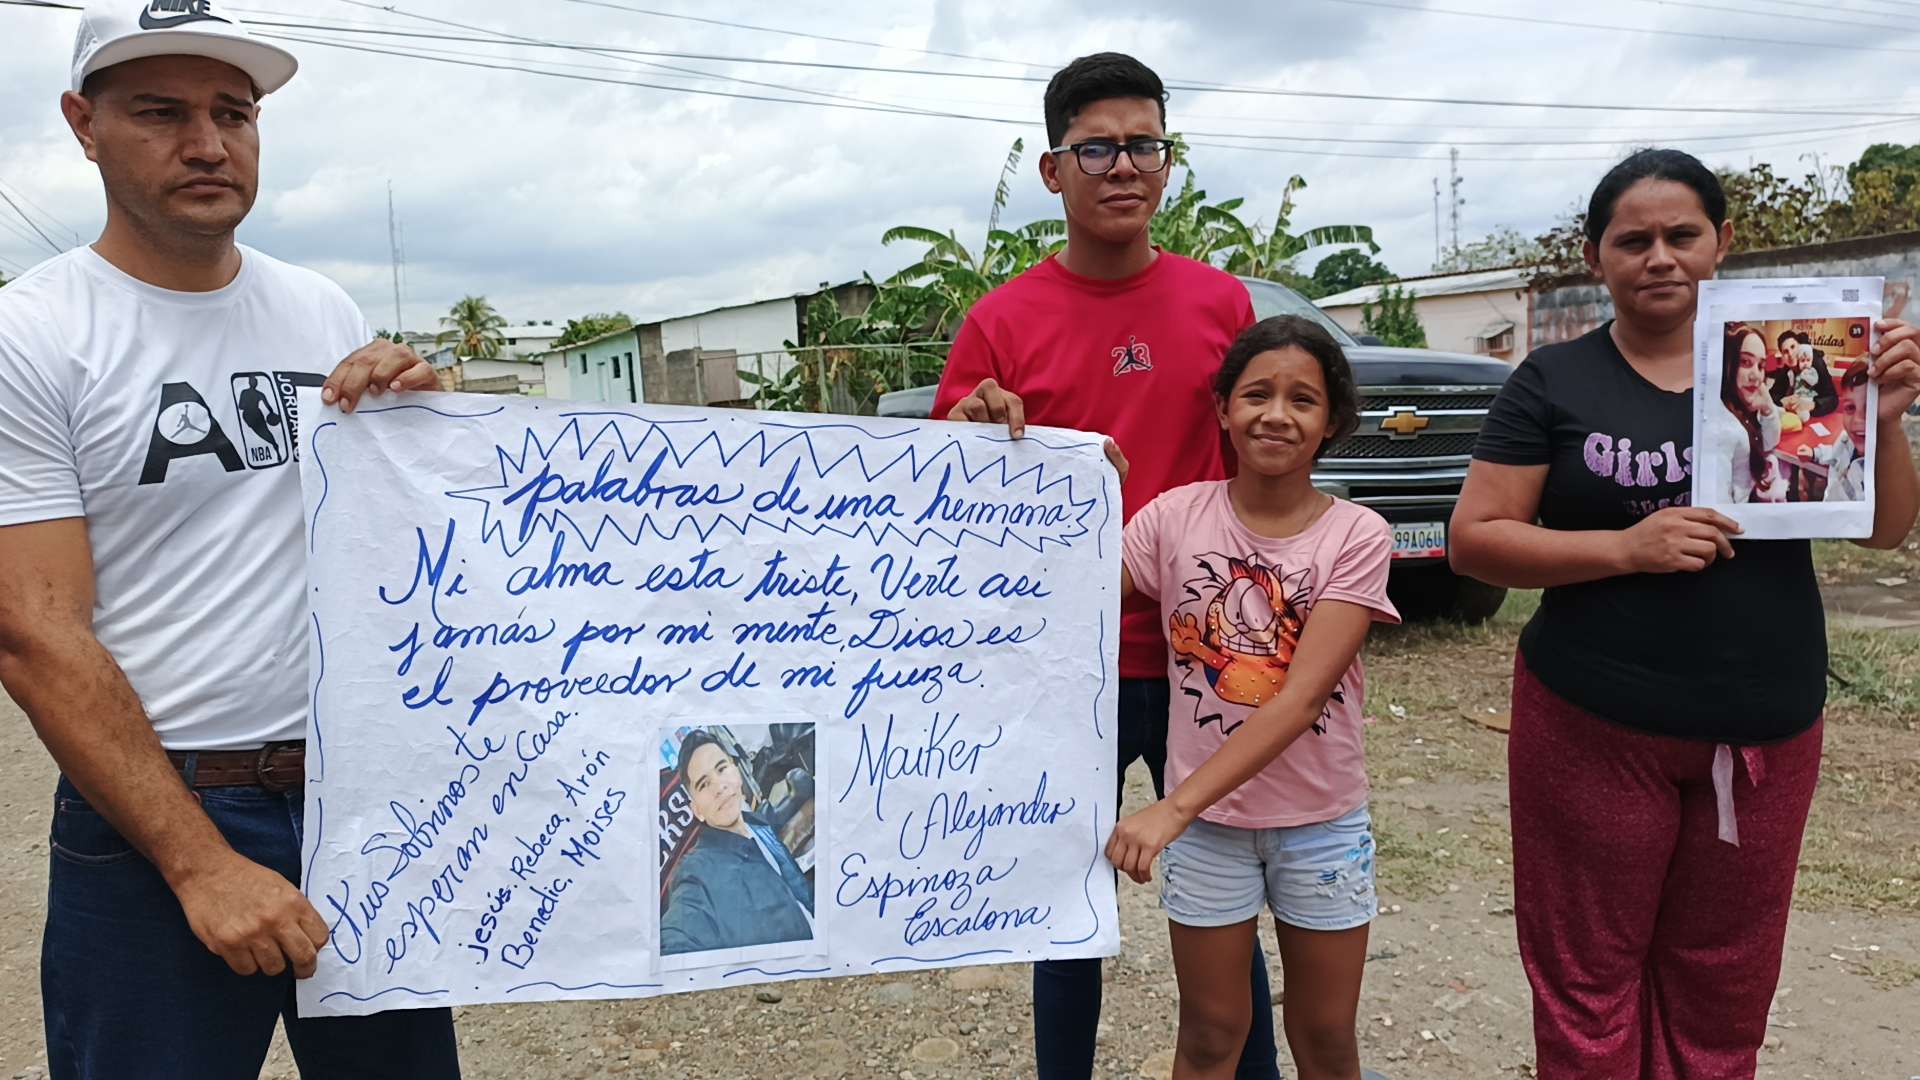 NIKE
JORDAN
NBA
23
palabras de una hermana.
Mi alma esta triste, Verte asi
jamás por mi mente, Dios es
el proveedor de mi fuerza.
Tus Sobrinos te
esperan en Casa.
jesús. Rebeca, Arón
Benedic, Moises
Maiker
Alejandro
Espinoza
Escalona.
99A06U
Girls